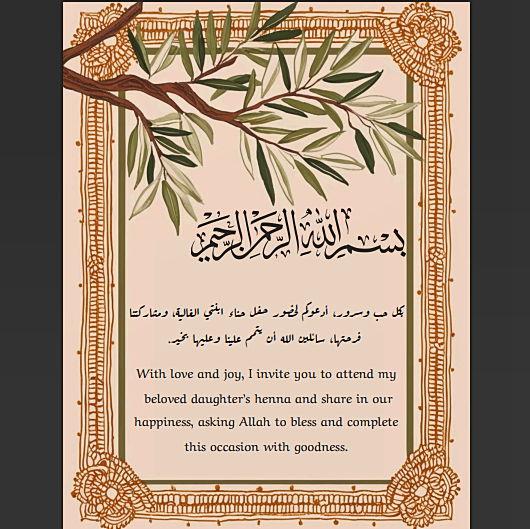 بسم الله الرحمن الرحيم
بكل حب وسرور، أدعوكم لحضور حفل حناء ابنتي الغالية، ومشاركتنا
فرحتها، سائلين الله أن يتمم علينا وعليها بخير.
With love and joy, I invite you to attend my
beloved daughter's henna and share in our
happiness, asking Allah to bless and complete
this occasion with goodness.